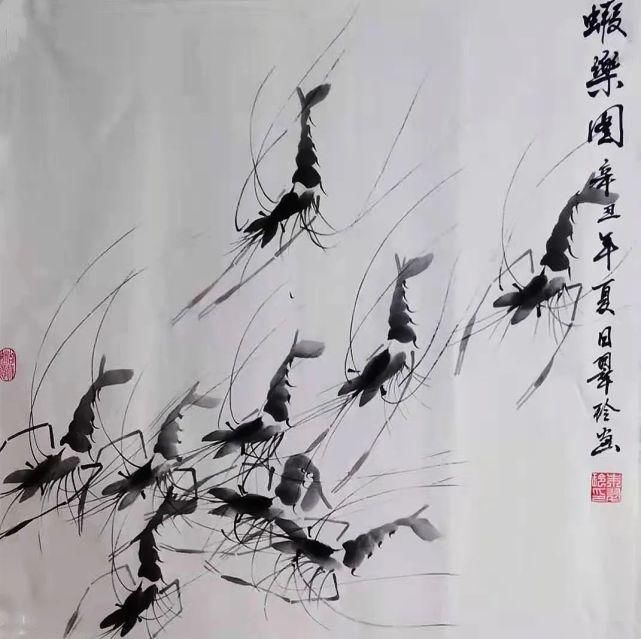 蝦樂圖 辛丑年夏日翠玲画